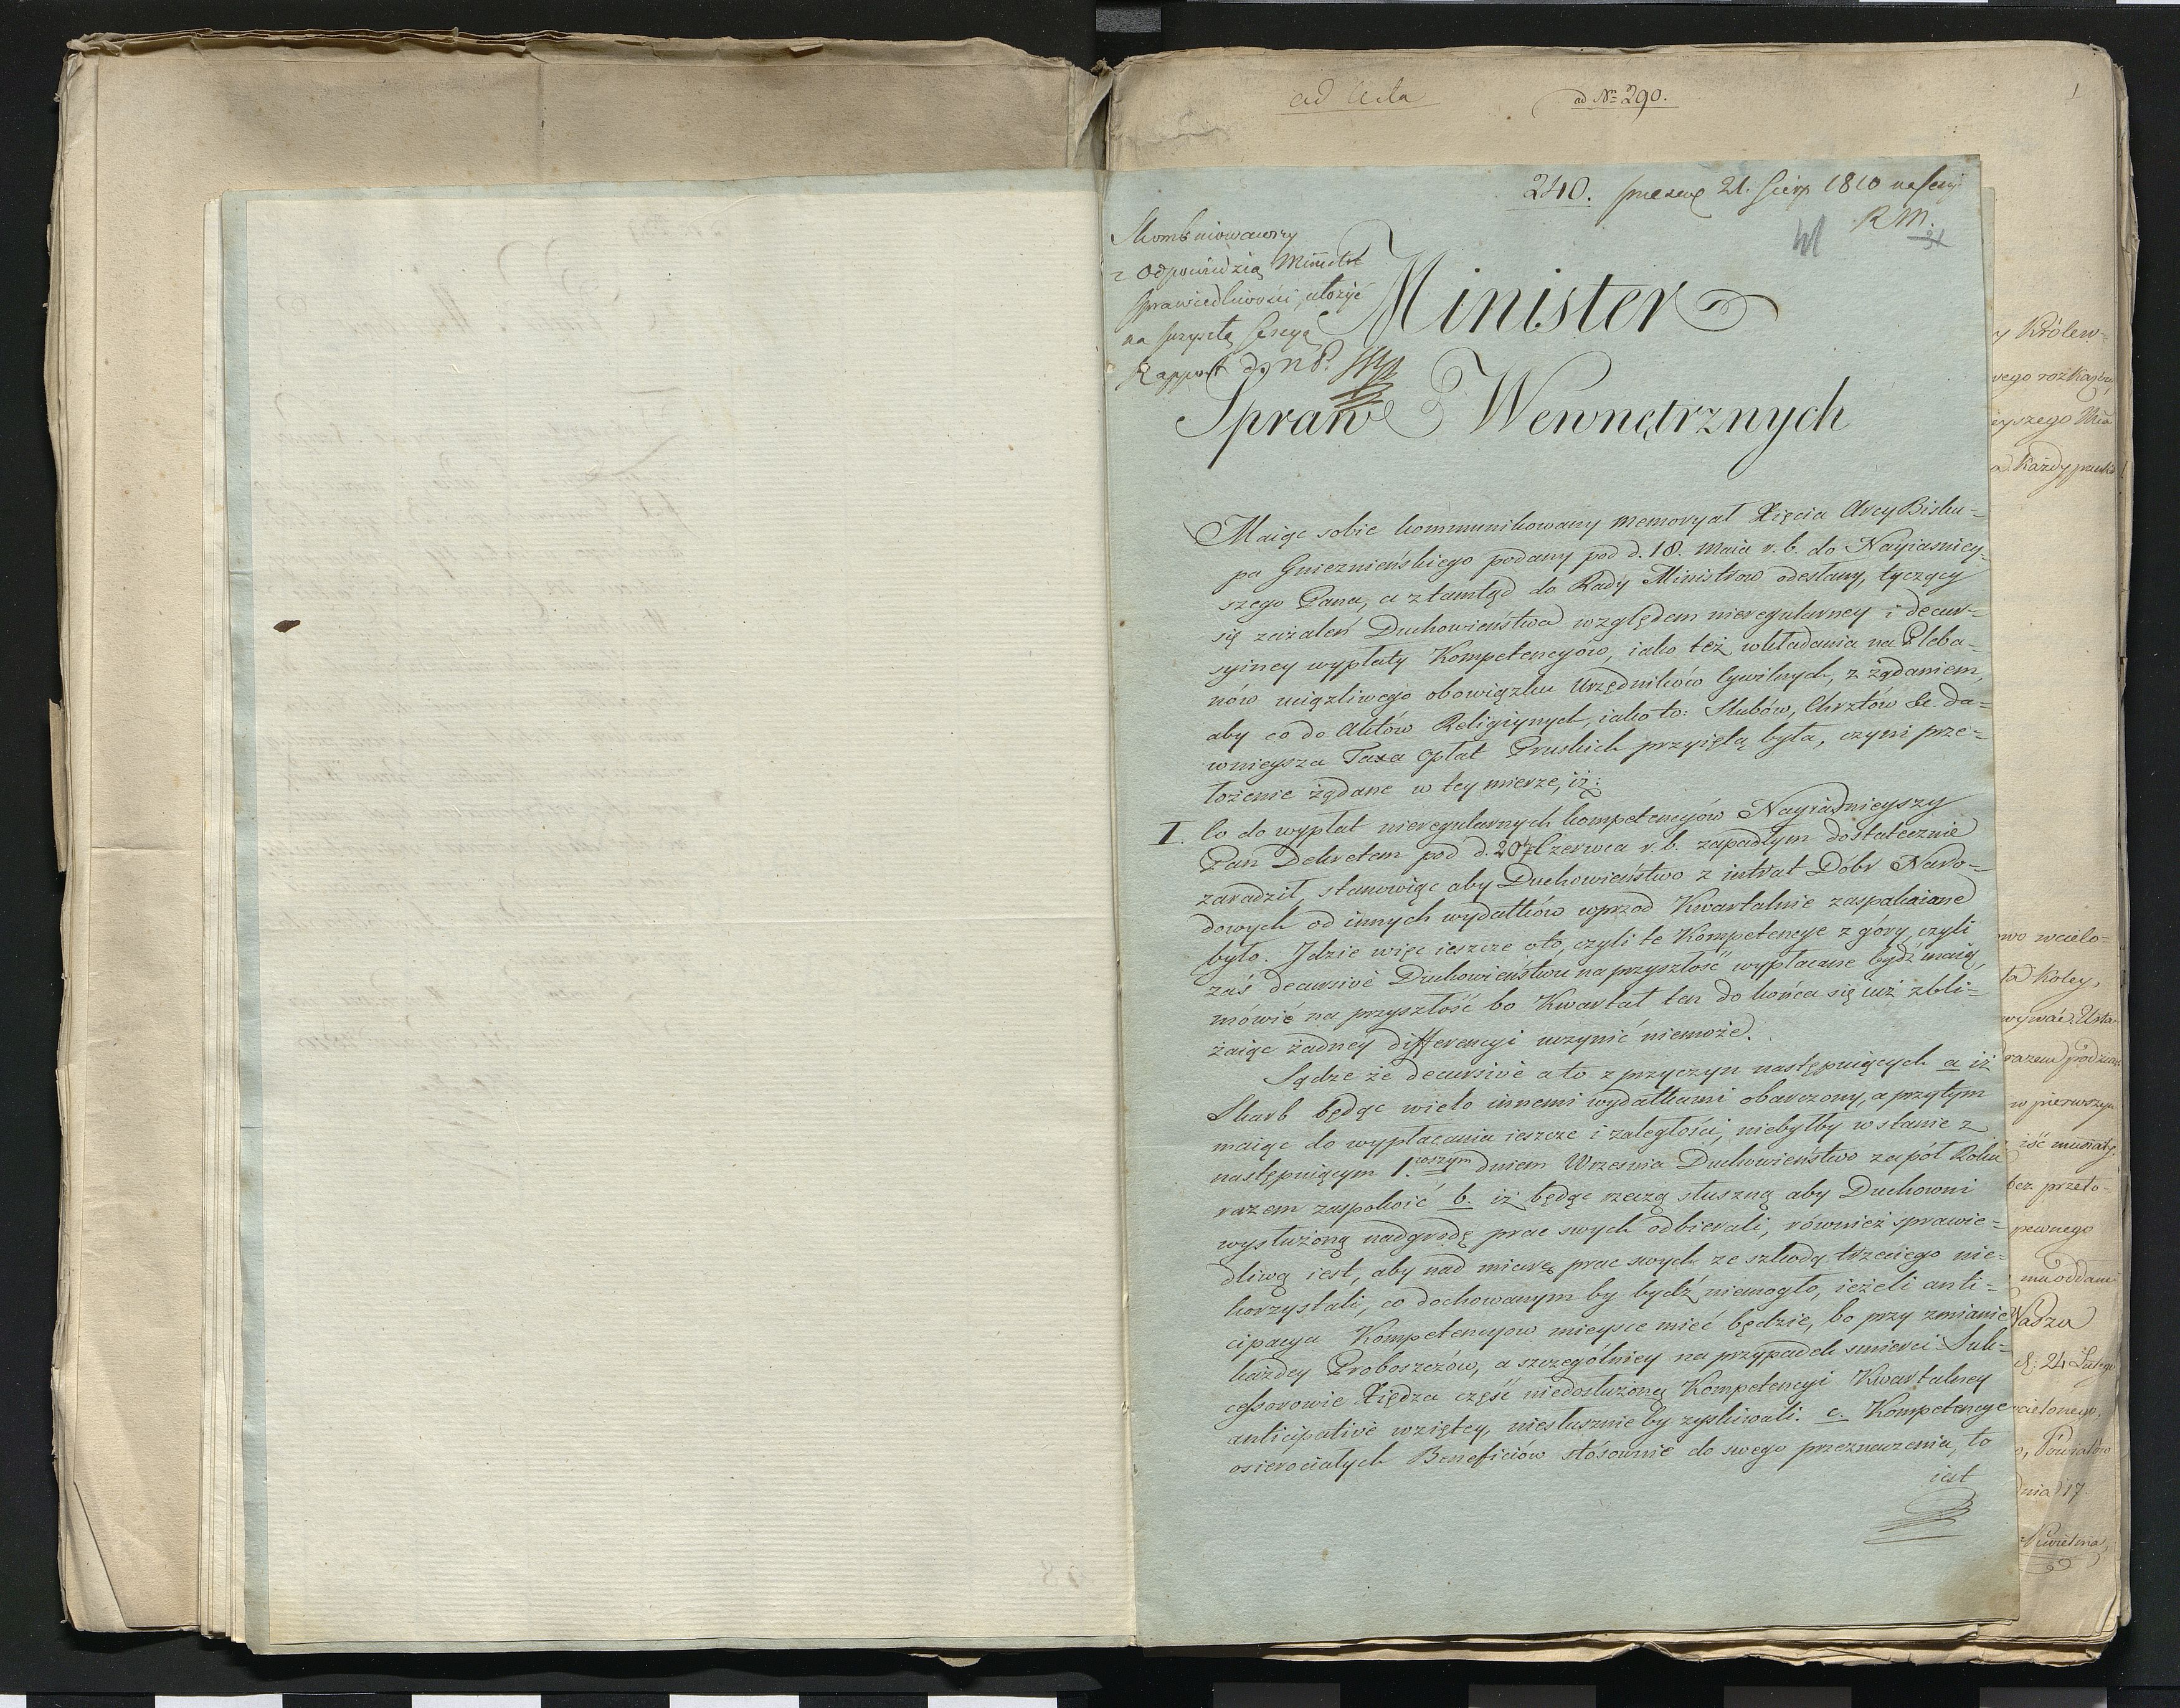 ad Acta
ad Nr 290.
1
240. 21. Sierp 1810 na Sessyi
R M.
41
31
Skombinowawszy
z Odpowiedzią Ministr
Sprawiedliwości, ułożyć
na przyszłą Sessyą
Rapport do NP.
Minister
Spraw Wewnętrznych
Maiąc sobie kommunikowany memoryał Xięcia ArcyBisku-
pa Gnieznieńskiego podany pod d. 18. Maia r. b. do Nayiasniey-
szego Pana, a ztamtąd do Rady Ministrow odesłany, tyczący
się zażaleń Duchowieństwa względem nieregularney i decur-
syiney wypłaty Kompetencyów, iako też wkładania na Pleba-
nów uciążliwego obowiązku Urzędników Cywilnych, z żądaniem,
aby co do Aktów Religiynych, iako to: Slubów, Chrztów &c. da-
wnieysza Taxa Opłat Pruskich przyiętą była, czyni prze-
łożenie żądane w tey mierze, iż:
I. Co do wypłat nieregularnych kompetencyów Nayiasnieyszy
Pan Dekretem pod d. 20 Czerwca r. b. zapadłym dostatecznie
zaradził, stanowiąc aby Duchowieństwo z intrat Dobr Naro-
dowych od innych wydatków wprzod Kwartalnie zaspakaiane
było. Jdzie więc ieszcze oto, czyli te Kompetencye z góry, czyli
zaś decursivè Duchowieństwu na przyszłość wypłacane bydź maią,
mówię na przyszłość bo Kwartał ten do końca się iuż zbli-
żaiąc żadney differencyi uczynić niemoże.
Sądze że decursivè a to z przyczyn następuiących a iż
Skarb będąc wielo innemi wydatkami obarczony, a przytym
maiąc do wypłacania ieszcze i zaległości, niebyłby w stanie z
następuiącym 1.wszym dniem Wrzesnia Duchowieństwo za pół Roku
razem zaspokoić b. iż będąc rzeczą słuszną aby Duchowni
wysłużoną nadgrodę prac swych odbierali, również sprawie-
dliwą iest, aby nad miarę prac swych ze szkodą trzeciego nie-
korzystali, co dochowanym by bydź niemogło, ieżeli anti-
cipacya Kompetencyow mieysce mieć będzie, bo przy zmianie
każdey Proboszczów, a szczególniey na przypadek smierci Suk-
cessorowie Xiędza część niedosłużoną Kompetencyi Kwartalney
anticipativè wziętey, niesłusznie by zyskiwali. c. Kompetencye
osierociałych Beneficiów stósownie do swego przeznaczenia, to
iest
y Królew-
wego rozkazu,
Każdy
owo wcielo-
ta Koley,
razem
w pierwszym
iść musiały
bez przeło-
pewnego
mu oddane
Wasza
d: 24 Lutego
wcielonego,
o, Powiatów
dnia 17.
Kwietnia,